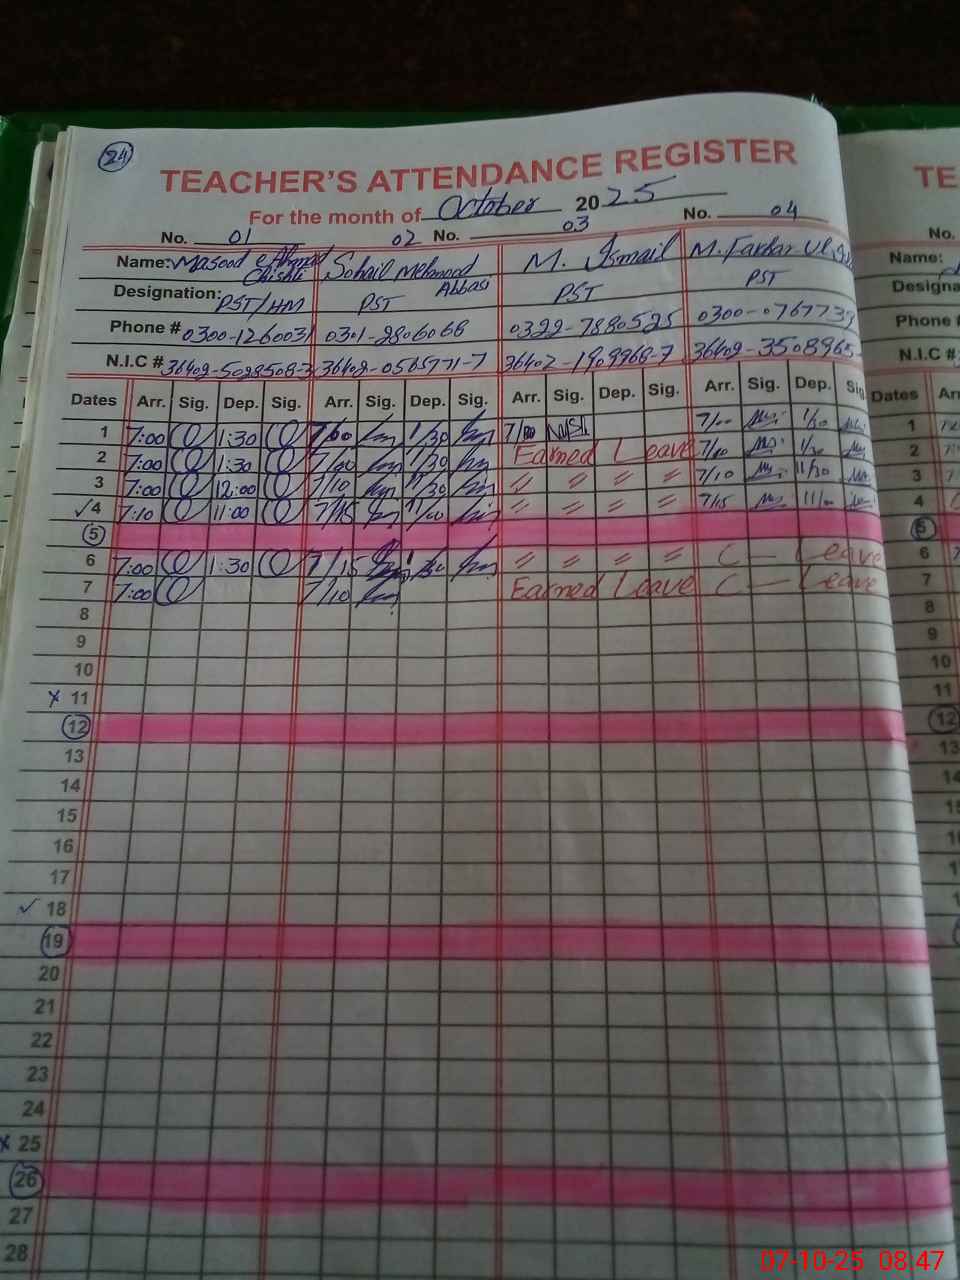 24
TEACHER'S ATTENDANCE REGISTER
For the month of October 2025
No. 01 02 No. 03 No. 04
Name: Masood Ahmad Chishti Sohail Mehmood Abbasi M. Ismail M. Fakhar Ul
Designation: PST/HM PST PST PST
Phone # 0300-1260031 0301-2806068 0322-7880525 0300-0767739
N.I.C # 36402-5028508-3 36402-0565771-7 36402-1909968-7 36402-3508965-
Dates Arr. Sig. Dep. Sig. Arr. Sig. Dep. Sig. Arr. Sig. Dep. Sig. Arr. Sig. Dep. Sig.
1 7:00 1:30 7/00 1/30 7/00 7/00 1/30
2 7:00 1:30 7/00 1/30 Earned Leave 7/10 1/30
3 7:00 12:00 7/10 11/30 〃 〃 〃 〃 7/10 11/30
✓4 7:10 11:00 7/15 11/00 〃 〃 〃 〃 7/15 11/00
5
6 7:00 1:30 7/15 1/30 〃 〃 〃 〃 C — Leave
7 7:00 7/10 Earned Leave C — Leave
8
9
10
x 11
12
13
14
15
16
17
✓ 18
19
20
21
22
23
24
x 25
26
27
28
TE
No.
Name:
Designa
Phone #
N.I.C #
Dates Arr
1
2
3
4
5
6
7
8
9
10
11
12
13
14
15
07-10-25 08:47